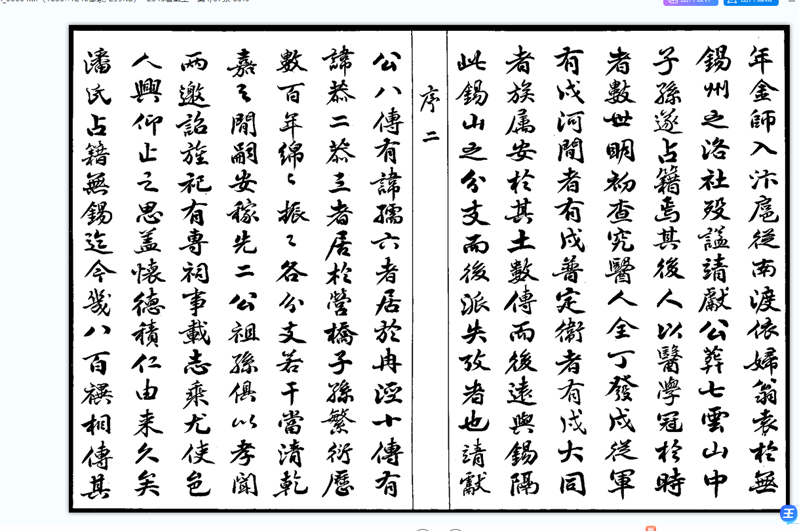 年金師入汴扈從南渡依婦翁袁於無
錫州之洛社歿謚請獻公葬七雲山中
子孫遂占籍焉其後人以醫學冠於時
者數世明初查究醫人全丁發戍從軍
有戍河間者有戍普定衛者有戍大同
者族属安於其土數傳而後遠與錫隔
此錫山之分支而後派失攷者也請獻
序 二
公八傳有諱孺六者居於冉涇十傳有
諱恭二恭三者居於營橋子孫繁衍歷
數百年綿〻振〻各分支若干當清乾
嘉之間嗣安稼先二公祖孫俱以孝聞
兩邀詔旌祀有專祠事載志乘尤使邑
人興仰止之思蓋懷德積仁由来久矣
潘氏占籍無錫迄今幾八百禩相傳其